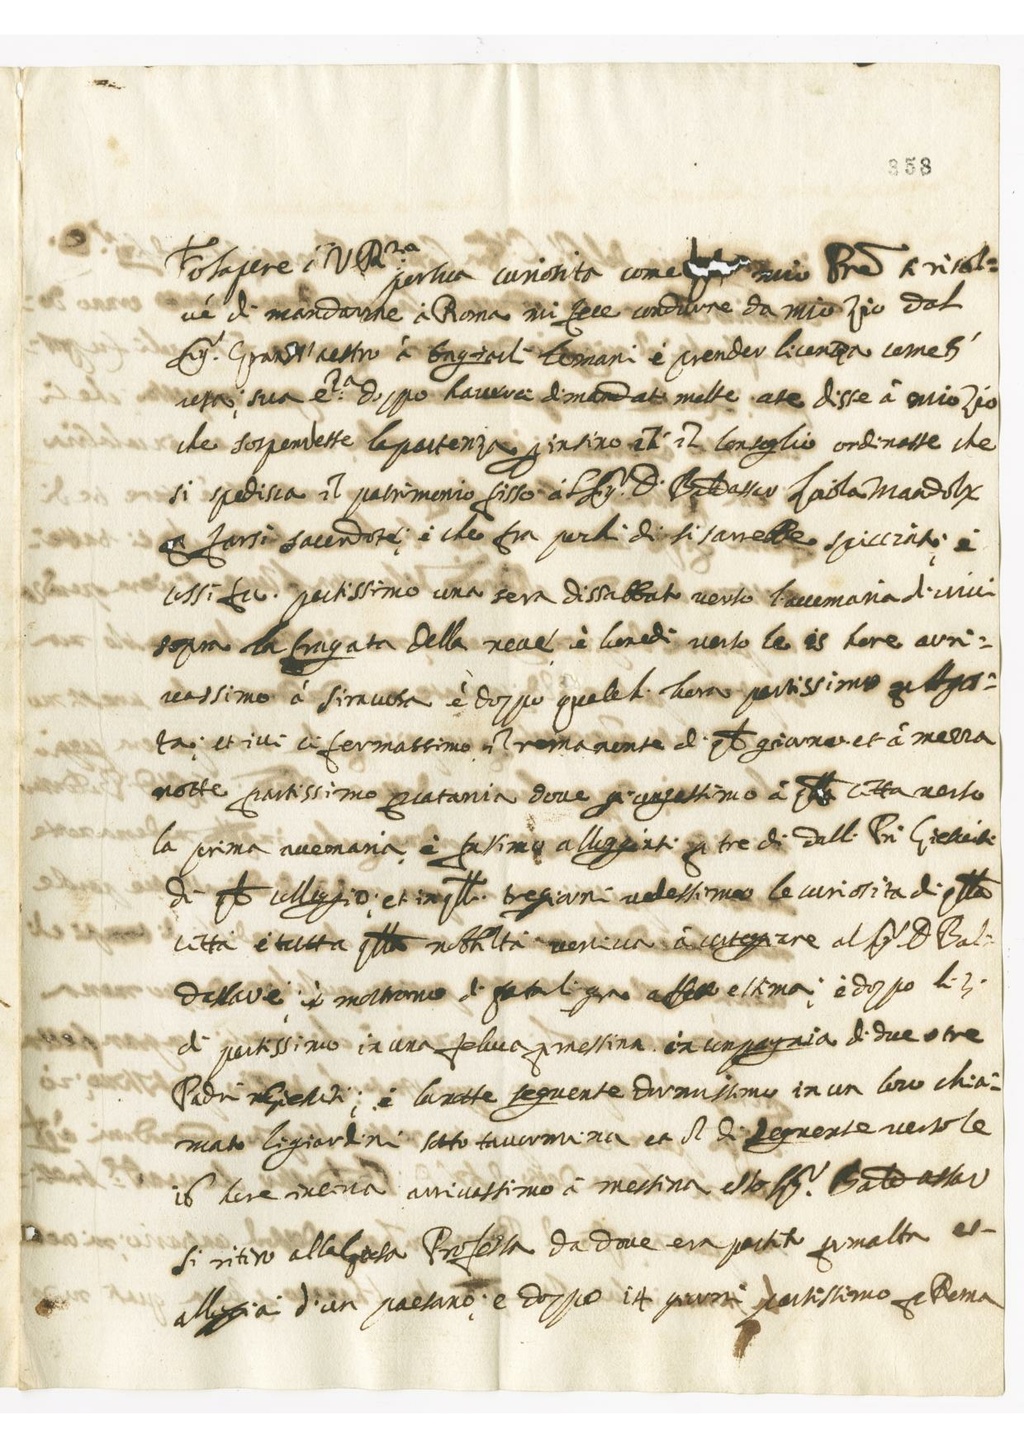 358
Fo sapere à V. R.za per sua curiosita come mio Pre si risol=
vé di mandarme à Roma mi fece condurre da mio Zio dal
Sig.r Gran Maestro à baciarli le mani é prender licenza
sua E.za doppo havere dimandat molte disse â mio Zio
che sospendesse la partenza insino il Conseglio ordinasse che
si spedisca il patrimonio fisso á Sig.r D. Baldassar Loiola Mandolx
p farsi sacerdote; é che fra pochi di si sarrebbe spicciato; é
cussi fu. partissimo una sera di sabbato verso l'avemaria
sopra la fragata della neve, è lunedi verso le is hore arri=
vassimo á Siracusa é doppo qualch hora partissimo p Agos=
ta; et ivi ci fermassimo il remanente di giorno et á mezza
notte partissimo p catania dove giongessimo á citta verso
la prima avemaria, é fussimo alloggiati p tre di dalli Pri Giesuiti
di collegio; et in tre giorni vedessimo le curiosita di
citta é tutta nobbiltà veniva â al Sig.r D. Bal=
dassare; mostrono di gran estima; é doppo li 3
di partissimo in una feluca p messina in compagnia di due o tre
Padri Giesuiti; é la notte seguente durmissimo in un loco chia=
mato li giardini sotto tavormina et il di seguente verso le
16 hore incirca arrivassimo à messina esso Sig.r Baldassar
si ritiro alla Casa Professa da dove era partito p malta et
alloggiai d'un paesano; e doppo 14 giorni partissimo p Roma